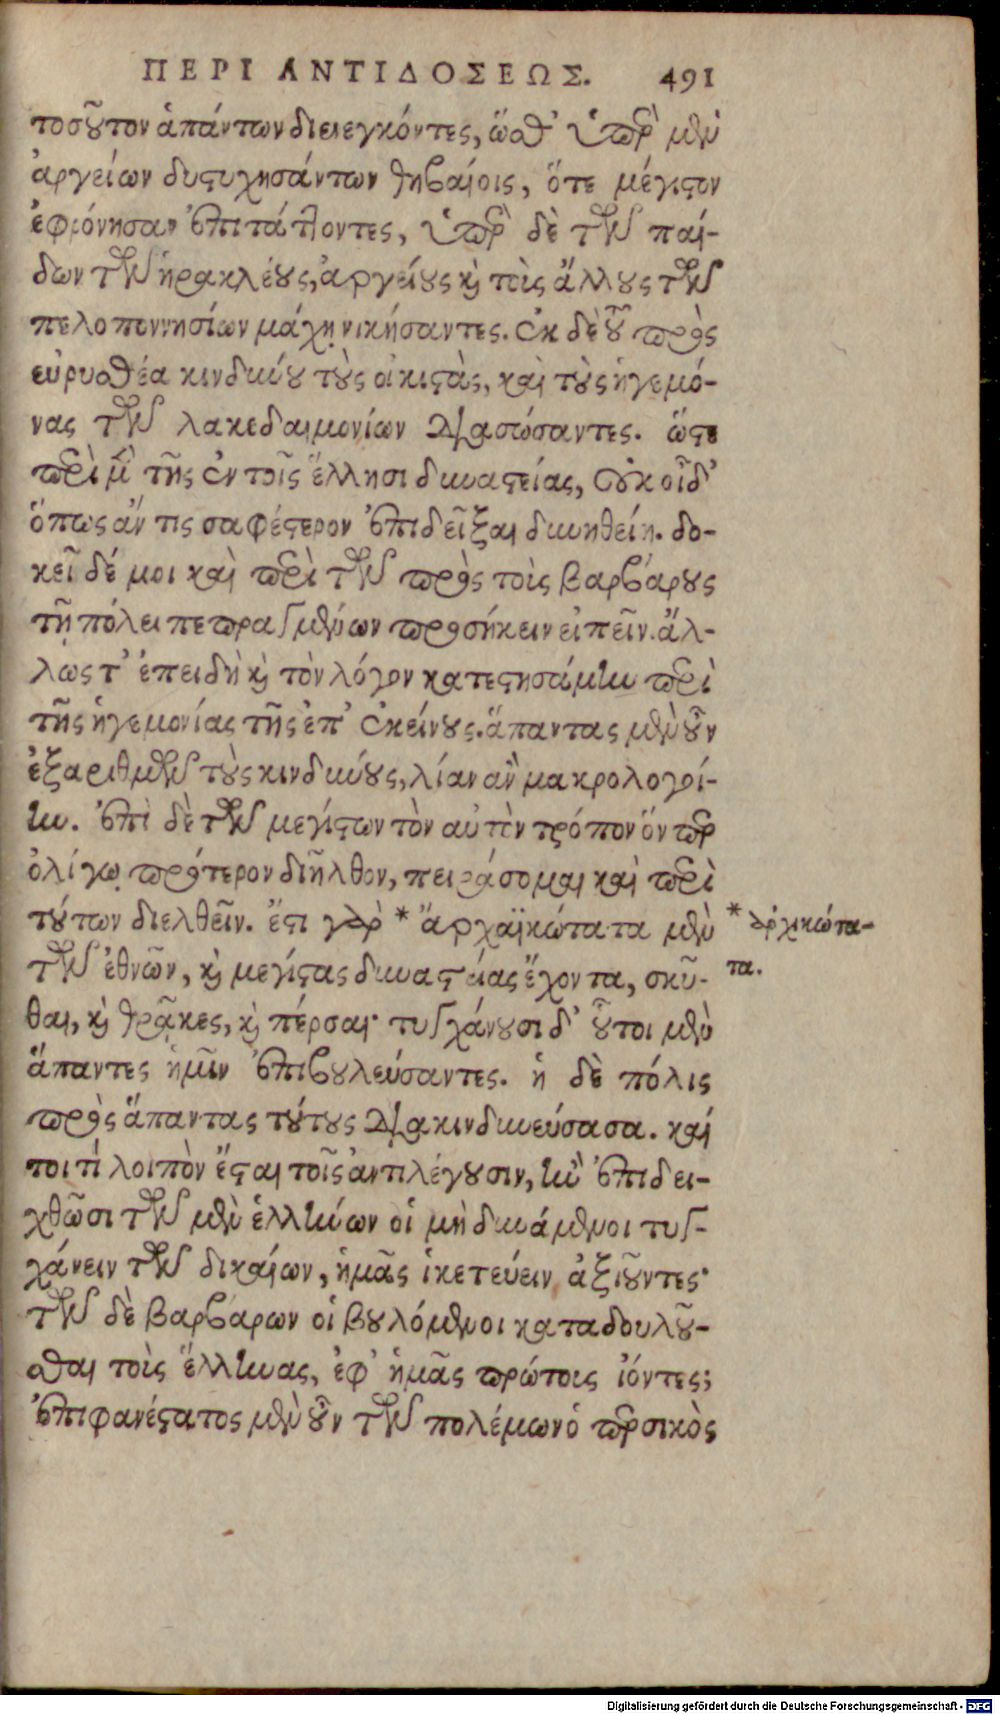 ΠΕΡΙ ΑΝΤΙΔΟΣΕΩΣ. 491
τοσοῦτον ἁπάντων διενεγκόντες, ὥσθ' ὑπὲρ μὲν
ἀργείων δυστυχησάντων θηβαίοις, ὅτε μέγιστον
ἐφρόνησαν ἐπιτάττοντες, ὑπὲρ δὲ τῶν παί-
δων τῶν ἡρακλέους, ἀργείους καὶ τοὺς ἄλλους τῶν
πελοποννησίων μάχῃ νικήσαντες. ἐκ δὲ τοῦ πρὸς
εὐρυσθέα κινδύνου τοὺς οἰκιστὰς, καὶ τοὺς ἡγεμό-
νας τῶν λακεδαιμονίων διασώσαντες. ὥστε
περὶ μὲν τῆς ἐν τοῖς ἕλλησι δυναστείας, οὐκ οἶδ'
ὅπως ἄν τις σαφέστερον ἐπιδεῖξαι δυνηθείη. δο-
κεῖ δέ μοι καὶ περὶ τῶν πρὸς τοὺς βαρβάρους
τῇ πόλει πεπραγμένων προσήκειν εἰπεῖν. ἄλ-
λως τ' ἐπειδὴ καὶ τὸν λόγον κατεστησάμην περὶ
τῆς ἡγεμονίας τῆς ἐπ' ἐκείνους. ἅπαντας μὲν οὖν
ἐξαριθμῶν τοὺς κινδύνους, λίαν ἂν μακρολογοί-
ην. ἐπὶ δὲ τῶν μεγίστων τὸν αὐτὸν τρόπον ὅνπερ
ὀλίγῳ πρότερον διῆλθον, πειράσομαι καὶ περὶ
τούτων διελθεῖν. ἔστι γὰρ * ἀρχαϊκώτατα μὲν
τῶν ἐθνῶν, καὶ μεγίστας δυναστείας ἔχοντα, σκύ-
θαι, καὶ θρᾷκες, καὶ πέρσαι· τυγχάνουσι δ' οὗτοι μὲν
ἅπαντες ἡμῖν ἐπιβουλεύσαντες. ἡ δὲ πόλις
πρὸς ἅπαντας τούτους διακινδυνεύσασα. καί
τοι τί λοιπὸν ἔσται τοῖς ἀντιλέγουσιν, ἢν ἐπιδει-
χθῶσι τῶν μὲν ἑλλήνων οἱ μὴ δυνάμενοι τυγ-
χάνειν τῶν δικαίων, ἡμᾶς ἱκετεύειν ἀξιοῦντες·
τῶν δὲ βαρβάρων οἱ βουλόμενοι καταδουλοῦ-
σθαι τοὺς ἕλληνας, ἐφ' ἡμᾶς πρώτους ἰόντες;
ἐπιφανέστατος μὲν οὖν τῶν πολέμων ὁ περσικὸς
* ἀρχικώτα-
τα.
Digitalisierung gefördert durch die Deutsche Forschungsgemeinschaft - DFG